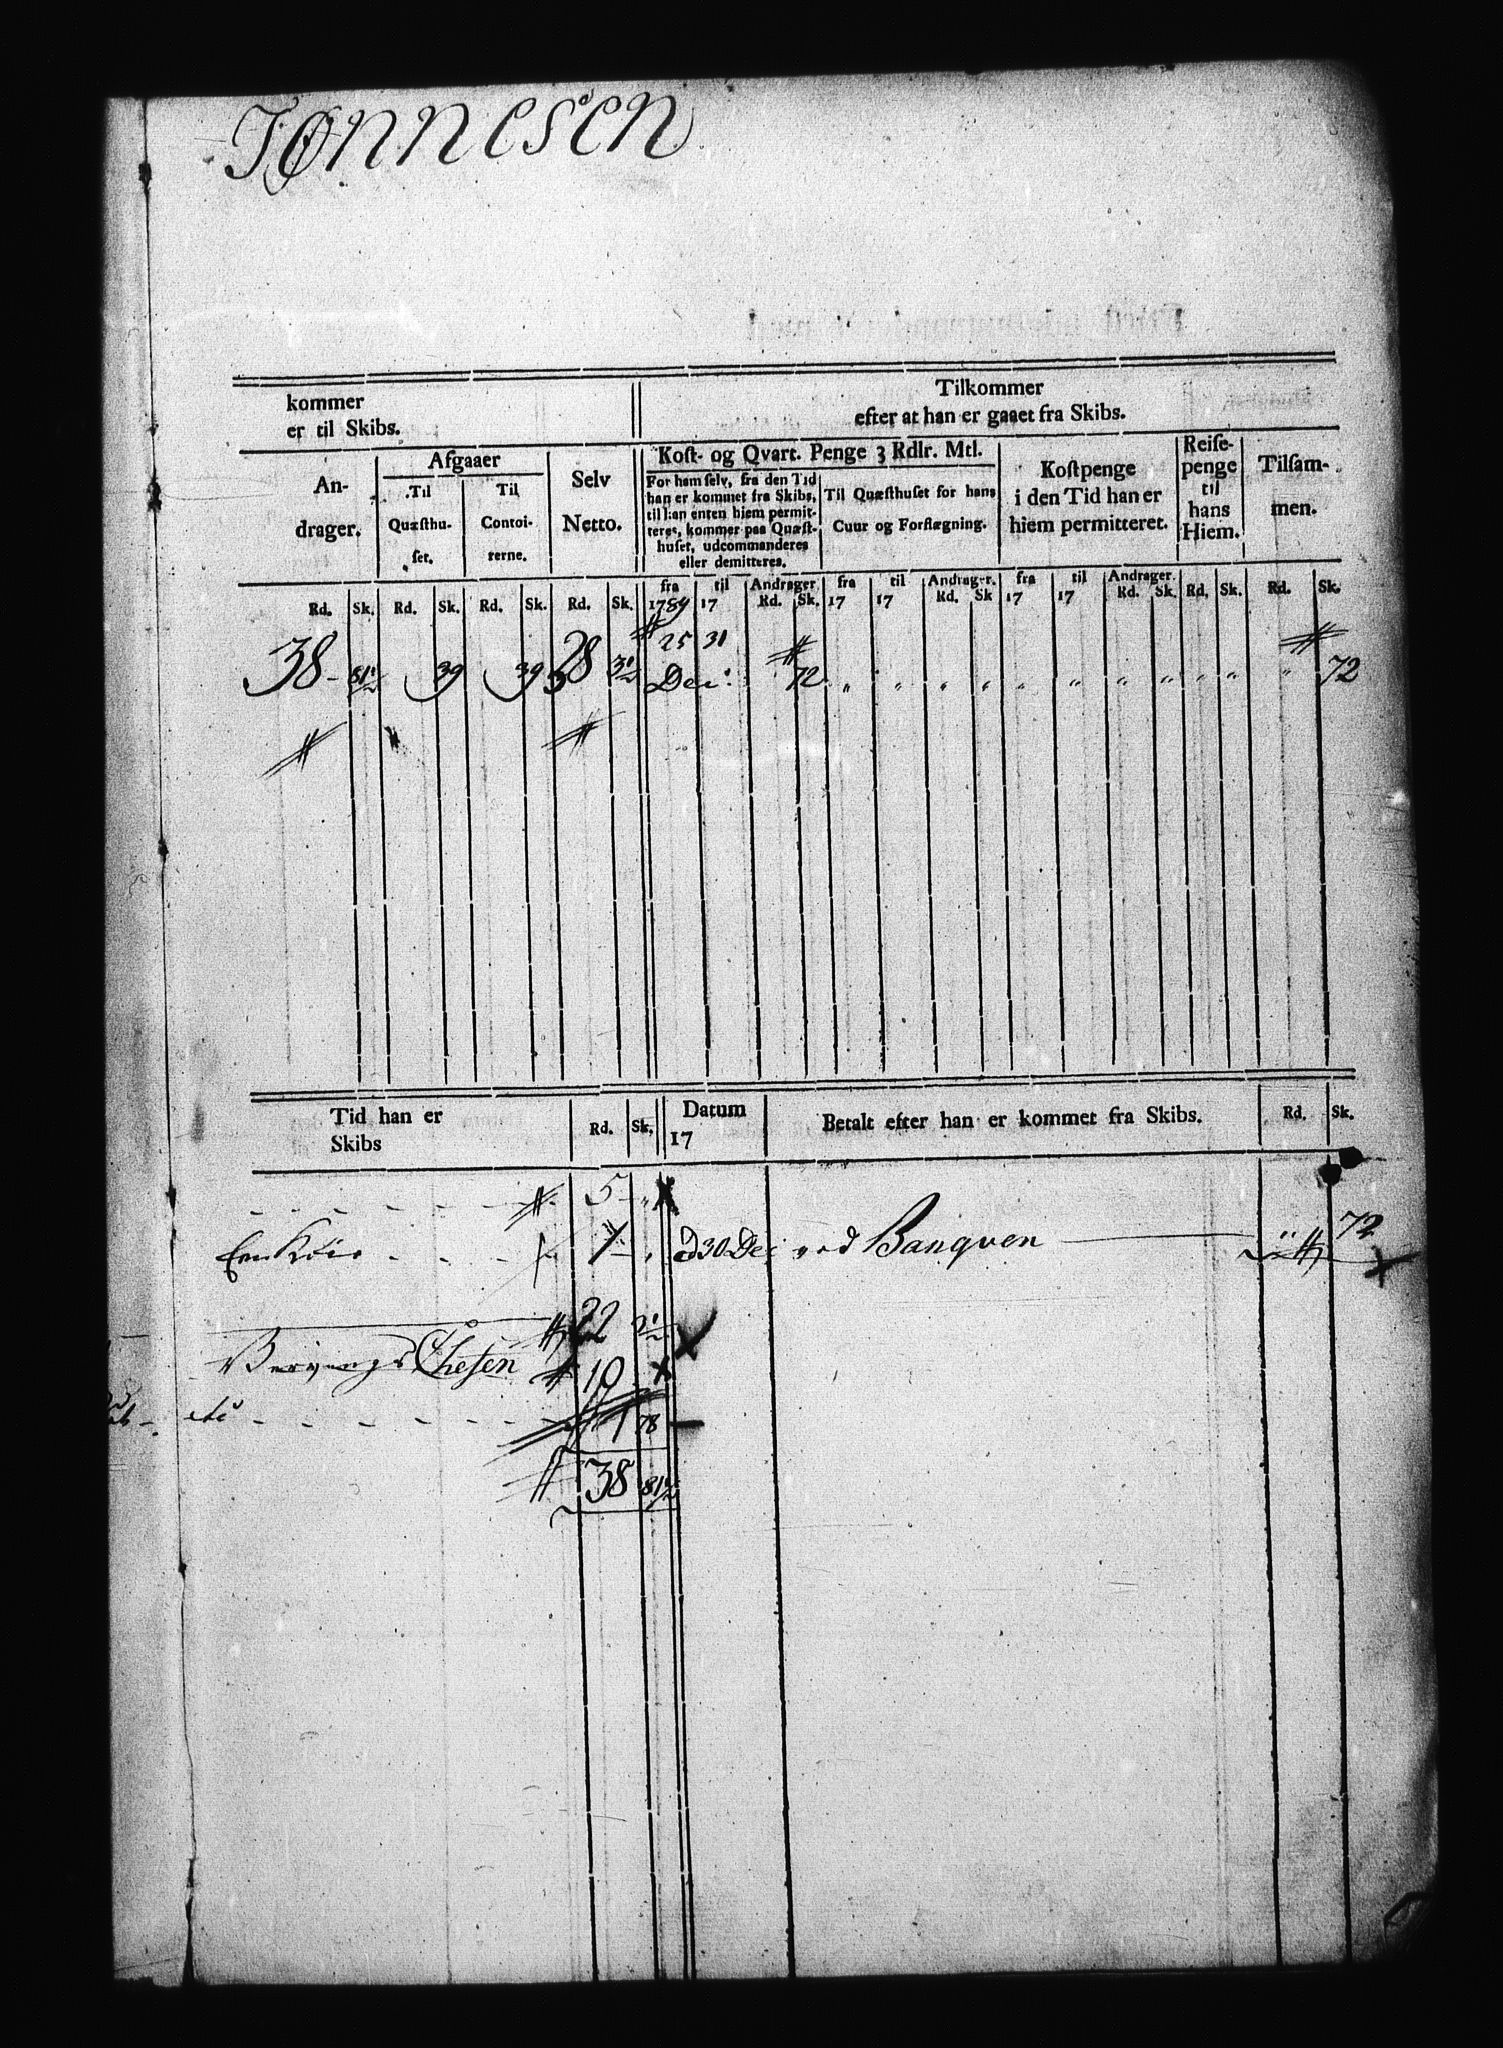 Tønnesen
kommer
er til Skibs.
Tilkommer
efter at han er gaaet fra Skibs.
An-
drager.
Afgaaer
Til
Quæsthu-
set.
Til
Contoi-
rerne.
Selv
Netto.
Kost- og Qvart. Penge 3 Rdlr. Mtl.
For ham selv, fra den Tid
han er kommet fra Skibs,
til han enten hiem permit-
teres, kommer paa Quæst-
huset, udcommanderes
eller demitteres.
Til Quæsthuset for hans
Cuur og Forflægning.
Kostpenge
i den Tid han er
hiem permitteret.
Reise-
penge
til
hans
Hiem.
Tilsam-
men.
fra til Andrager. fra til Andrager. fra til Andrager.
Rd. Sk. Rd. Sk. Rd. Sk. Rd. Sk. 1789 17 Rd. Sk. 17 17 Rd. Sk 17 17 Rd. Sk. Rd. Sk. Rd. Sk.
25 31
38 81½ 39 39 38 3½ Dec: 72 „ „ „ „ „ „ „ „ „ „ „ 72
Tid han er
Skibs
Rd. Sk.
Datum
17
Betalt efter han er kommet fra Skibs.
Rd. Sk.
5 „
d 30 Dec ved Banqven 72
22 2½
Hvervings Chesen 10
1 78
38 81½